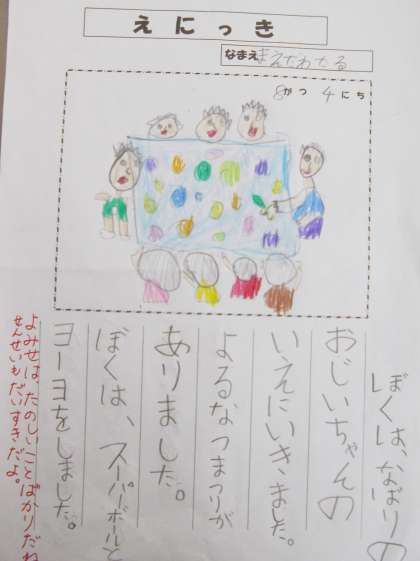 えにっき
なまえ まえだわたる
8がつ 4にち
ぼくは、なばりの
おじいちゃんの
いえにいきました。
よるなつまつりが
ありました。
ぼくは、スーパーボールと
ヨーヨをしました。
よみせは、たのしいことばかりだね
せんせいもだいすきだよ。